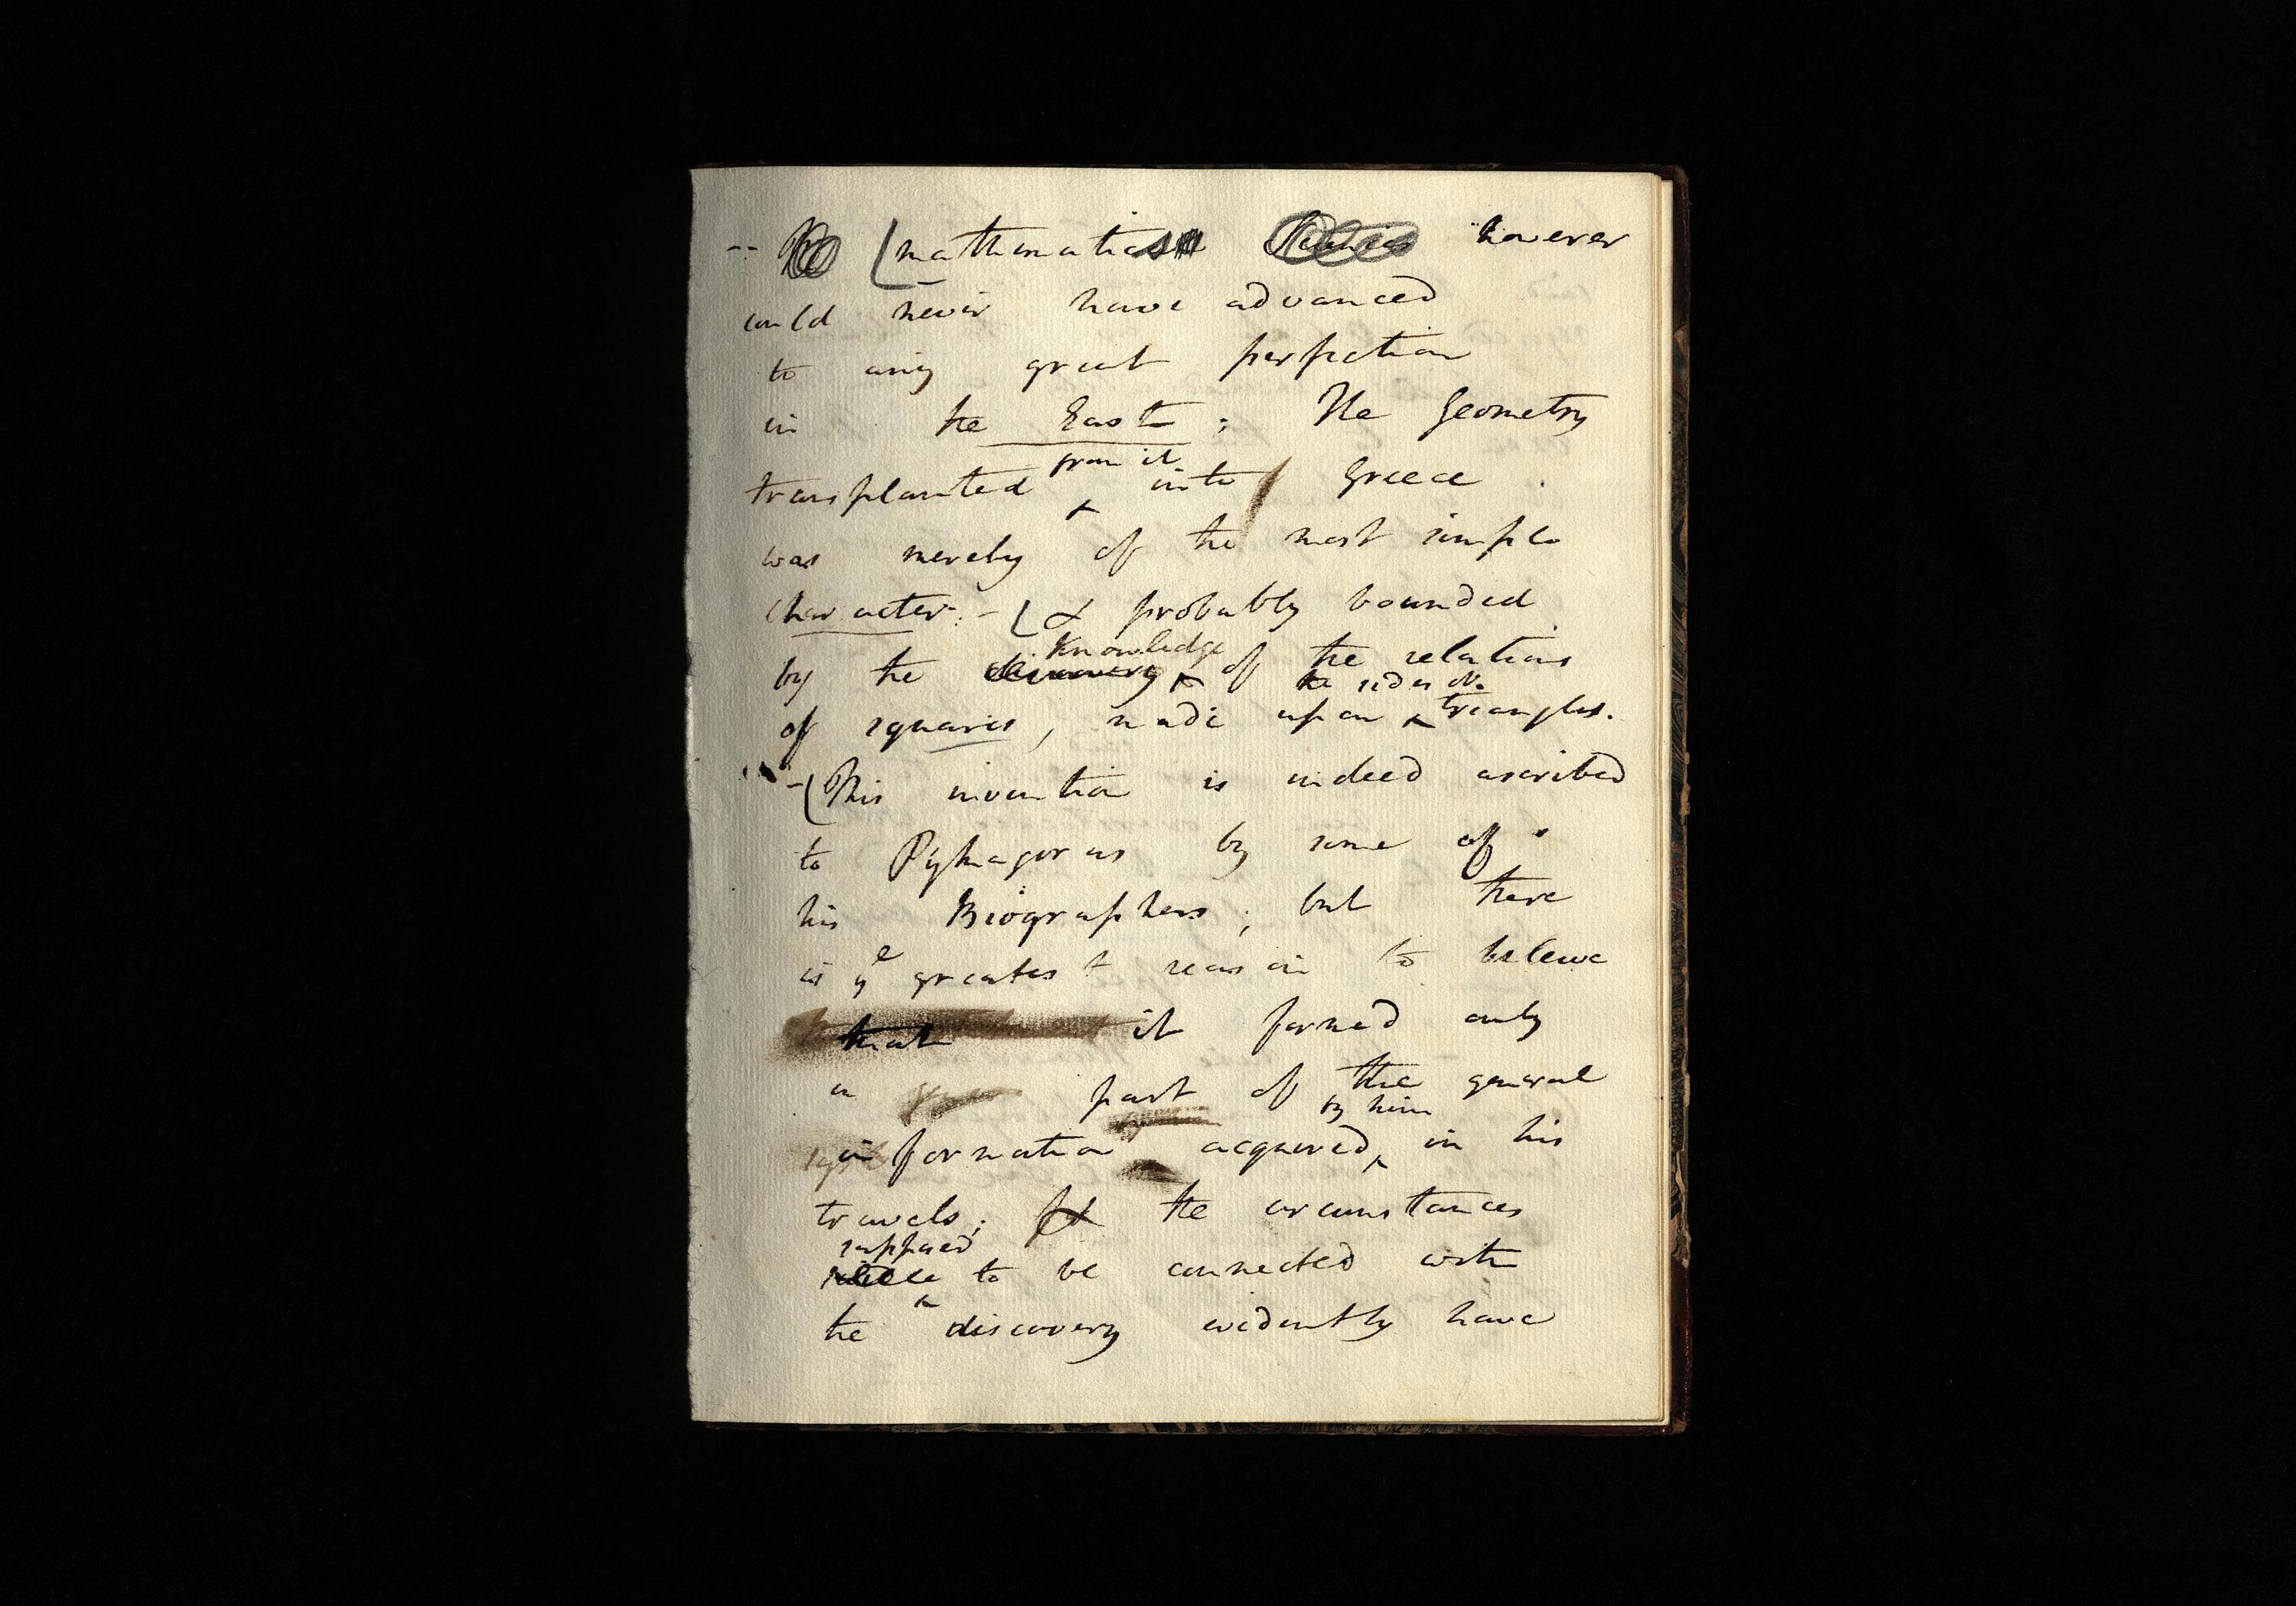 -- The (mathematics Sciences however
could never have advanced
to any great perfection
in the East; The Geometry
from it
transplanted ^ into Greece
was merely of the most simple
character. - (& probably bounded
knowledge
by the discovery ^ of the relations
the sides of
of squares, made upon ^ triangles.
- (This invention is indeed ascribed
to Pythagoras by some of
his Biographers; but there
is ye greatest reason to beleive
that it formed only
a part of the general
by him
information acquired ^ in his
travels; the circumstances
supposed
to be connected with
the ^ discovery evidently have